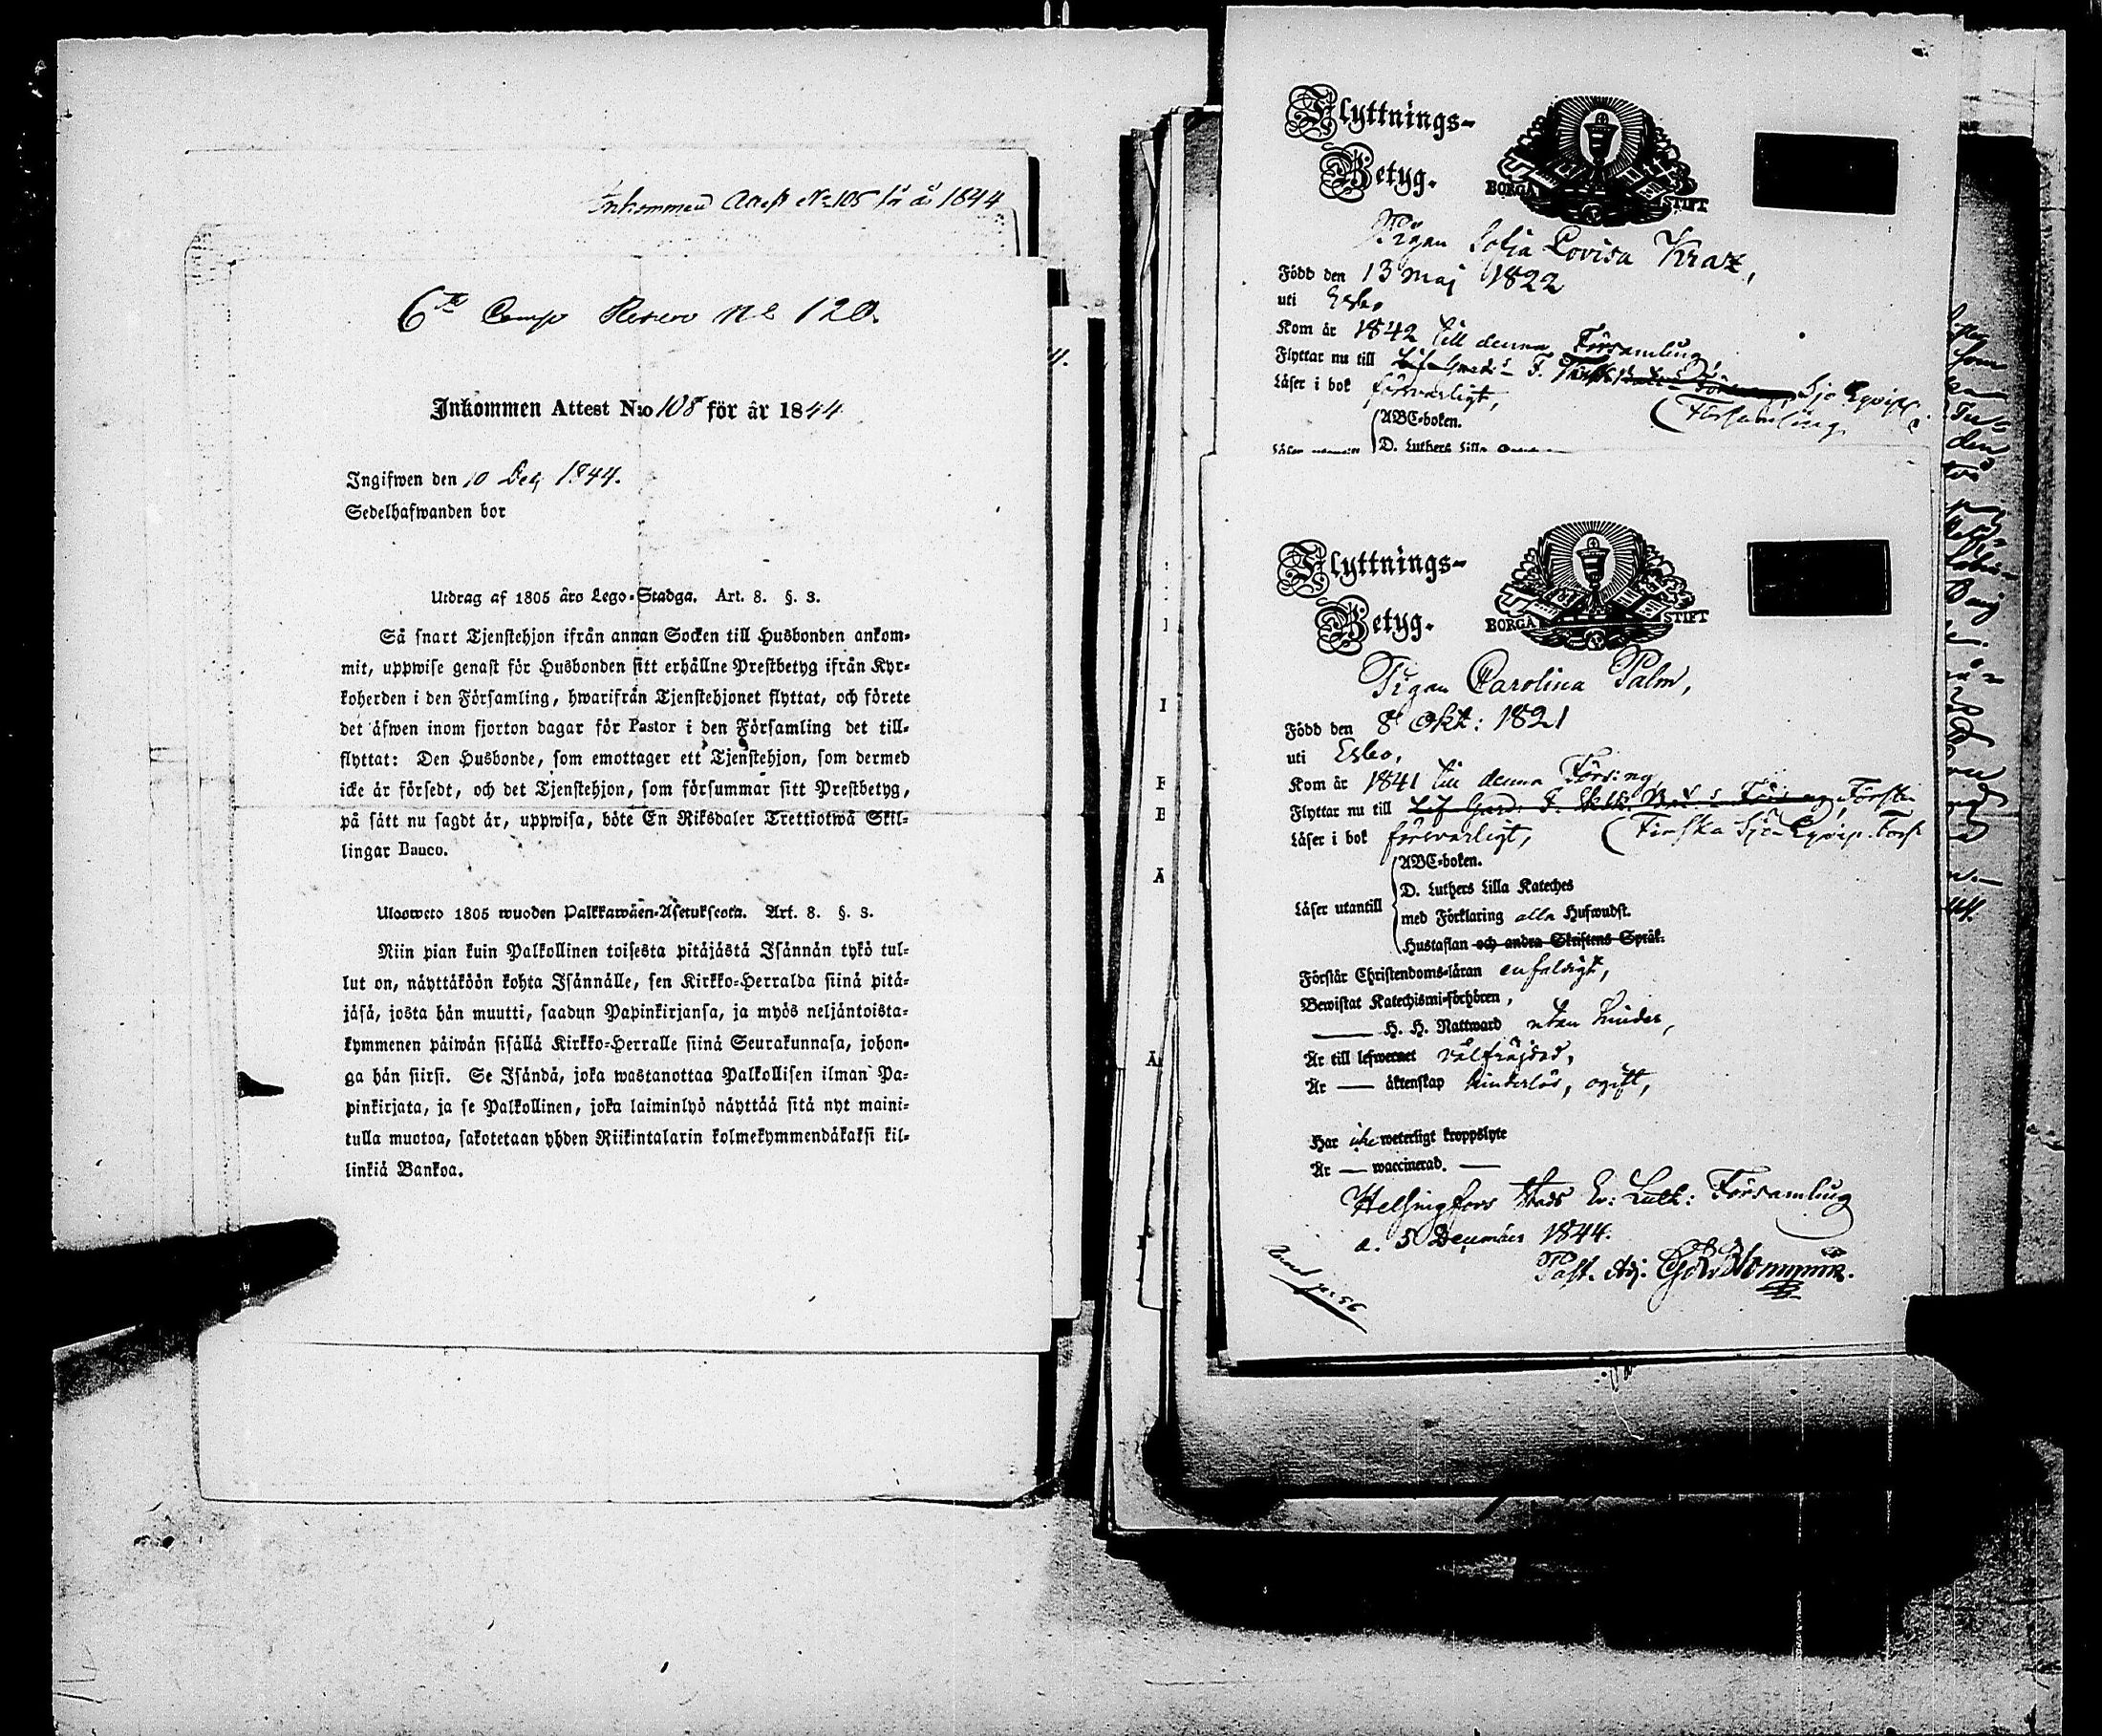 Inkommen Attest No 105 för år 1844
6te Comp Reserv No 120.
Inkommen Attest N:o 108 för år 1844
Ingifwen den 10 Dec 1844.
Sedelhafwanden bor
Utdrag af 1805 års Lego-Stadga. Art. 8. §. 3.
Så snart Tjenstehjon ifrån annan Socken till Husbonden ankom-
mit, uppwise genast för Husbonden sitt erhållne Prestbetyg ifrån Kyr-
koherden i den Församling, hwarifrån Tjenstehjonet flyttat, och förete
det äfwen inom fjorton dagar för Pastor i den Församling det till-
flyttat: Den Husbonde, som emottager ett Tjenstehjon, som dermed
icke är försedt, och det Tjenstehjon, som försummar sitt Prestbetyg,
på sätt nu sagdt är, uppwisa, böte En Riksdaler Trettiotwå Skil-
lingar Banco.
Ulosweto 1805 wuoden Palkkawäen-Asetuksesta. Art. 8. §. 3.
Niin pian kuin Palkollinen toisesta pitäjästä Isännän tykö tul-
lut on, näyttäköön kohta Isännälle, sen Kirkko-Herralda siinä pitä-
jäsä, josta hän muutti, saadun Papinkirjansa, ja myös neljäntoista-
kymmenen päiwän sisällä Kirkko-Herralle siinä Seurakunnasa, johon-
ga hän siirsi. Se Isändä, joka wastanottaa Palkollisen ilman Pa-
pinkirjata, ja se Palkollinen, joka laiminlyö näyttää sitä nyt maini-
tulla muotoa, sakotetaan yhden Riikintalarin kolmekymmendäkaksi kil-
linkiä Bankoa.
Flyttnings-
Betyg.
BORGÅ STIFT
Pigan Sofia Lovisa Kraz,
Född den 13 Maj 1822
uti Esbo
Kom år 1842 till denna Församling,
Flyttar nu till Sjö Eqvip.
Läser i bok försvarligt, (Församling
ABC-boken.
D. Luthers Lilla
Flyttnings-
Betyg.
BORGÅ STIFT
Pigan Carolina Palm,
Född den 8 Okt: 1821
uti Esbo,
Kom år 1841 till denna Förs:ng
Flyttar nu till
Läser i bok försvarligt, (Finska Sjö-Eqvip. Förs
Läser utantill
ABC-boken.
D. Luthers Lilla Kateches
med Förklaring alla Hufwudst.
Hustaflan och andra Skriftens Språk.
Förstår Christendoms-läran enfaldigt,
Bewistat Katechismi-förhören,
— H. H. Nattward utan hinder,
Är till lefwernet välfräjdad,
Är — äktenskap hinderlös, ogift,
Har icke weterligt kroppslyte
Är — waccinerad. —
Helsingfors Stads Ev: Luth: Församling
d. 5 December 1844.
Past. Adj.